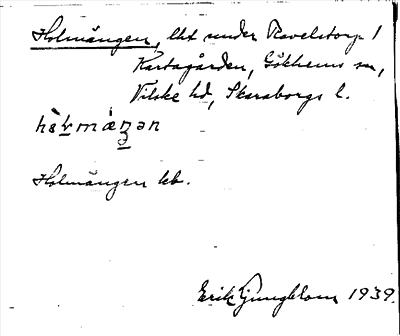 Holmängen, lht under Ravelstorp 1
Kartagården, Gökhems sn,
Vilske hd, Skaraborgs l.
Holmängen kb.
Erik Ljungblom 1939.